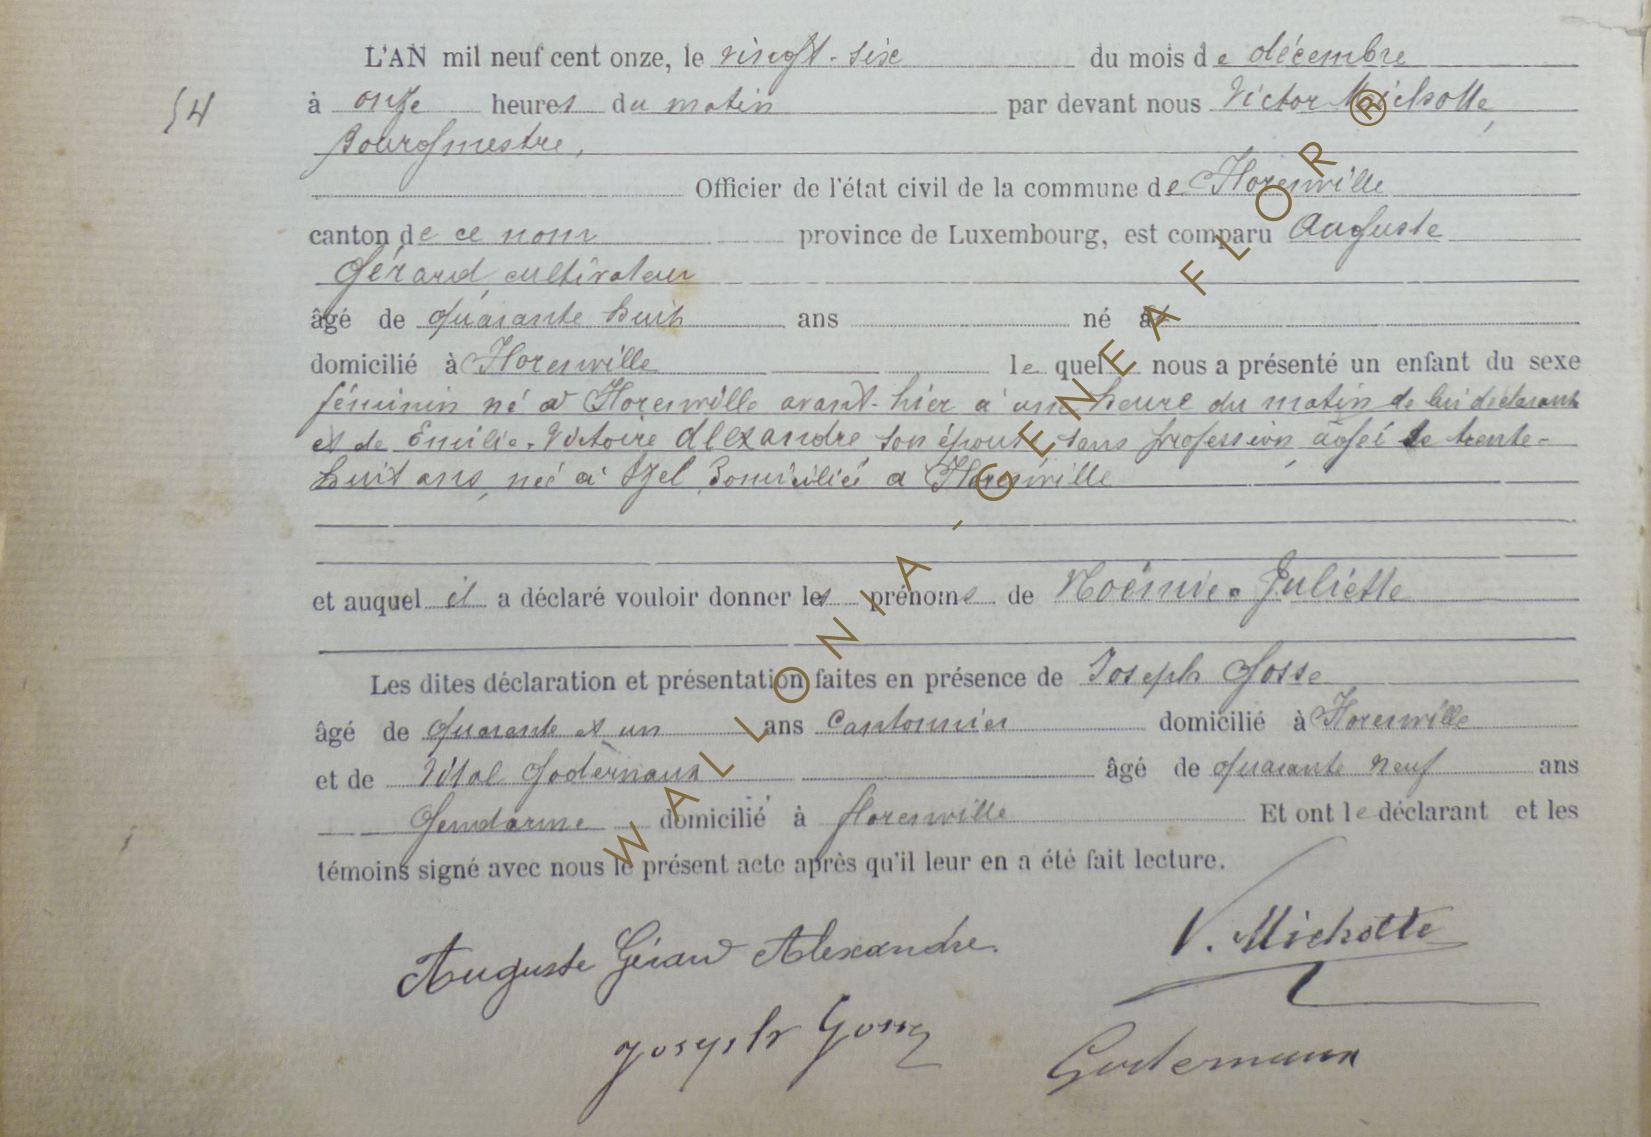 L'AN mil neuf cent onze, le vingt-six du mois de décembre
54
à onze heures du matin par devant nous Victor Michotte,
Bourgmestre,
Officier de l'état civil de la commune de Florenville
canton de ce nom province de Luxembourg, est comparu Auguste
Gérard, cultivateur
âgé de quarante huit ans né à
domicilié à Florenville lequel nous a présenté un enfant du sexe
féminin né à Florenville avant-hier à une heure du matin de lui déclarant
et de Emilie-Victoire Alexandre son épouse, sans profession, âgée de trente-
huit ans, née à Izel, domiciliée à Florenville
et auquel il a déclaré vouloir donner les prénoms de Noémie-Juliette
Les dites déclaration et présentation faites en présence de Joseph Gosse
âgé de quarante et un ans Cantonnier domicilié à Florenville
et de Vital Godernaux âgé de quarante neuf ans
Gendarme domicilié à florenville Et ont le déclarant et les
témoins signé avec nous le présent acte après qu'il leur en a été fait lecture.
Auguste Gérard Alexandre.
V. Michotte
Joseph Gosse
Godernaux
WALLONIA-GENEAFLOR®